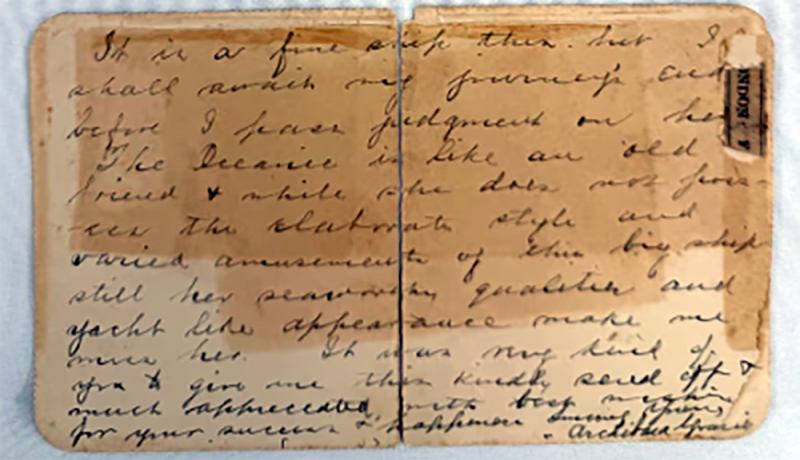 It is a fine ship this. but I
shall await my journey's end
before I pass judgment on her
The Oceanic is like an old
friend & while she does not pos-
-ses the elaborate style and
varied amusements of this big ship
still her seaworthy qualities and
yacht like appearance make me
miss her. It was very kind of
you to give me this kindly send off &
much appreciated, with best wishes
for your success & happiness Sincerely Yours
Archibald Gracie
NDON